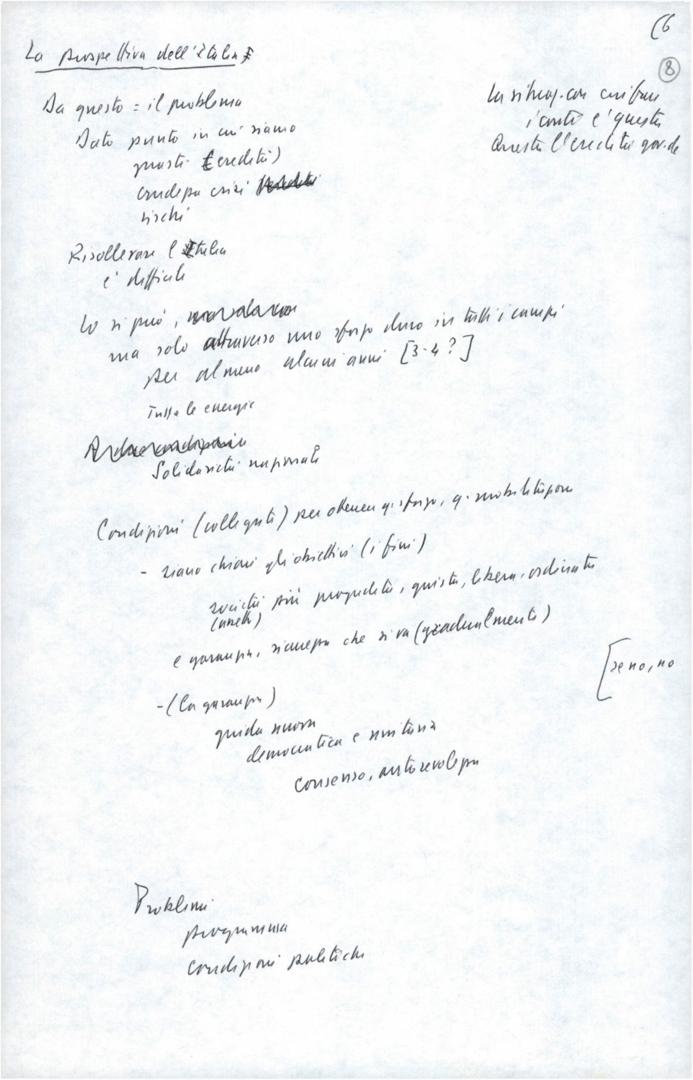 (6
8
La prospettiva dell'Italia
La situaz. con cui fare
i conti è questa
Questa l'eredità gov. dc
Da questo = il problema
Dato punto in cui siamo
guasti (eredità)
crudezza crisi
rischi
Risollevare l'Italia
è difficile
Lo si può,
ma solo attraverso uno sforzo duro in tutti i campi
per almeno alcuni anni [3-4?]
Tutte le energie
Solidarietà nazionale
Condizioni (collegate) per ottenere q. sforzo, q. mobilitazione
- siano chiari gli obiettivi (i fini)
società più progredita, giusta, libera, ordinata
(onesta)
e garanzia, sicurezza che si va (gradualmente)
[se no, no
- (La garanzia)
guida nuova
democratica e unitaria
consenso, autorevolezza
Problemi
programma
condizioni politiche